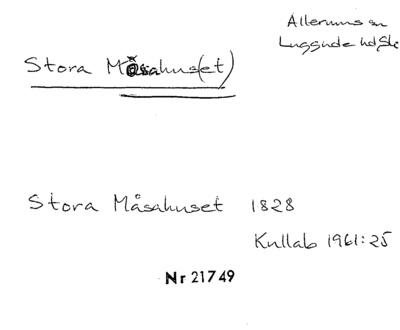 Allerums sn
Luggude hd Sk
Stora Måsahus(et)
Stora Måsahuset 1828
Kullab 1961:25
Nr 21749